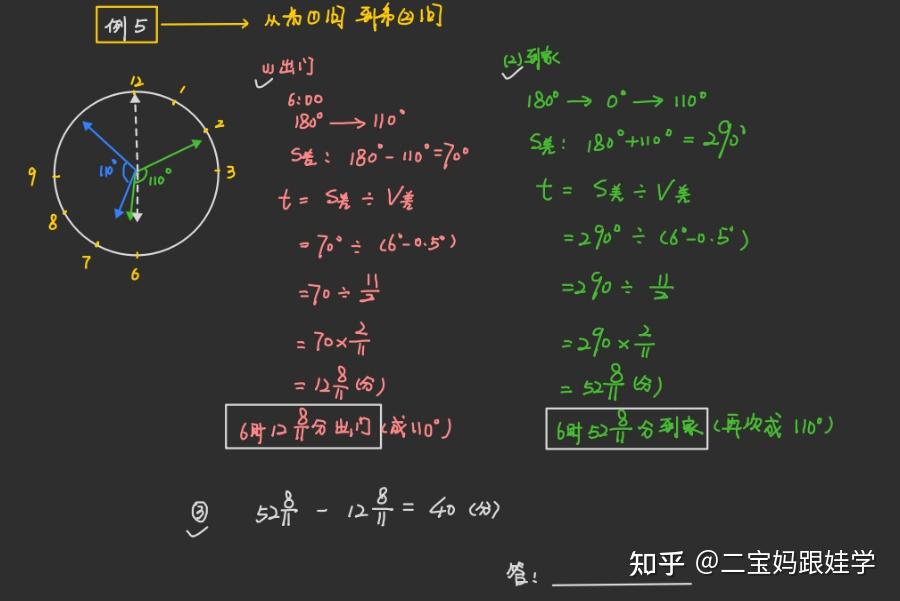 例5
从第①问到第②问
12
1
2
3
9
8
7
6
110°
110°
(1)出门
6:00
180° → 110°
S差: 180°-110°=70°
t = S差 ÷ V差
=70° ÷ (6°-0.5°)
=70 ÷ 11/2
=70×2/11
=12 8/11(分)
6时12 8/11分出门(成110°)
(2)到家
180° → 0° → 110°
S差: 180°+110°=290°
t = S差 ÷ V差
=290° ÷ (6°-0.5°)
=290 ÷ 11/2
=290×2/11
=52 8/11(分)
6时52 8/11分到家(再次成110°)
③ 52 8/11 - 12 8/11 = 40(分)
答:
知乎 @二宝妈跟娃学